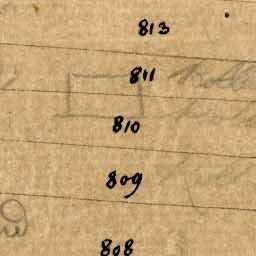 813
811
810
809
808